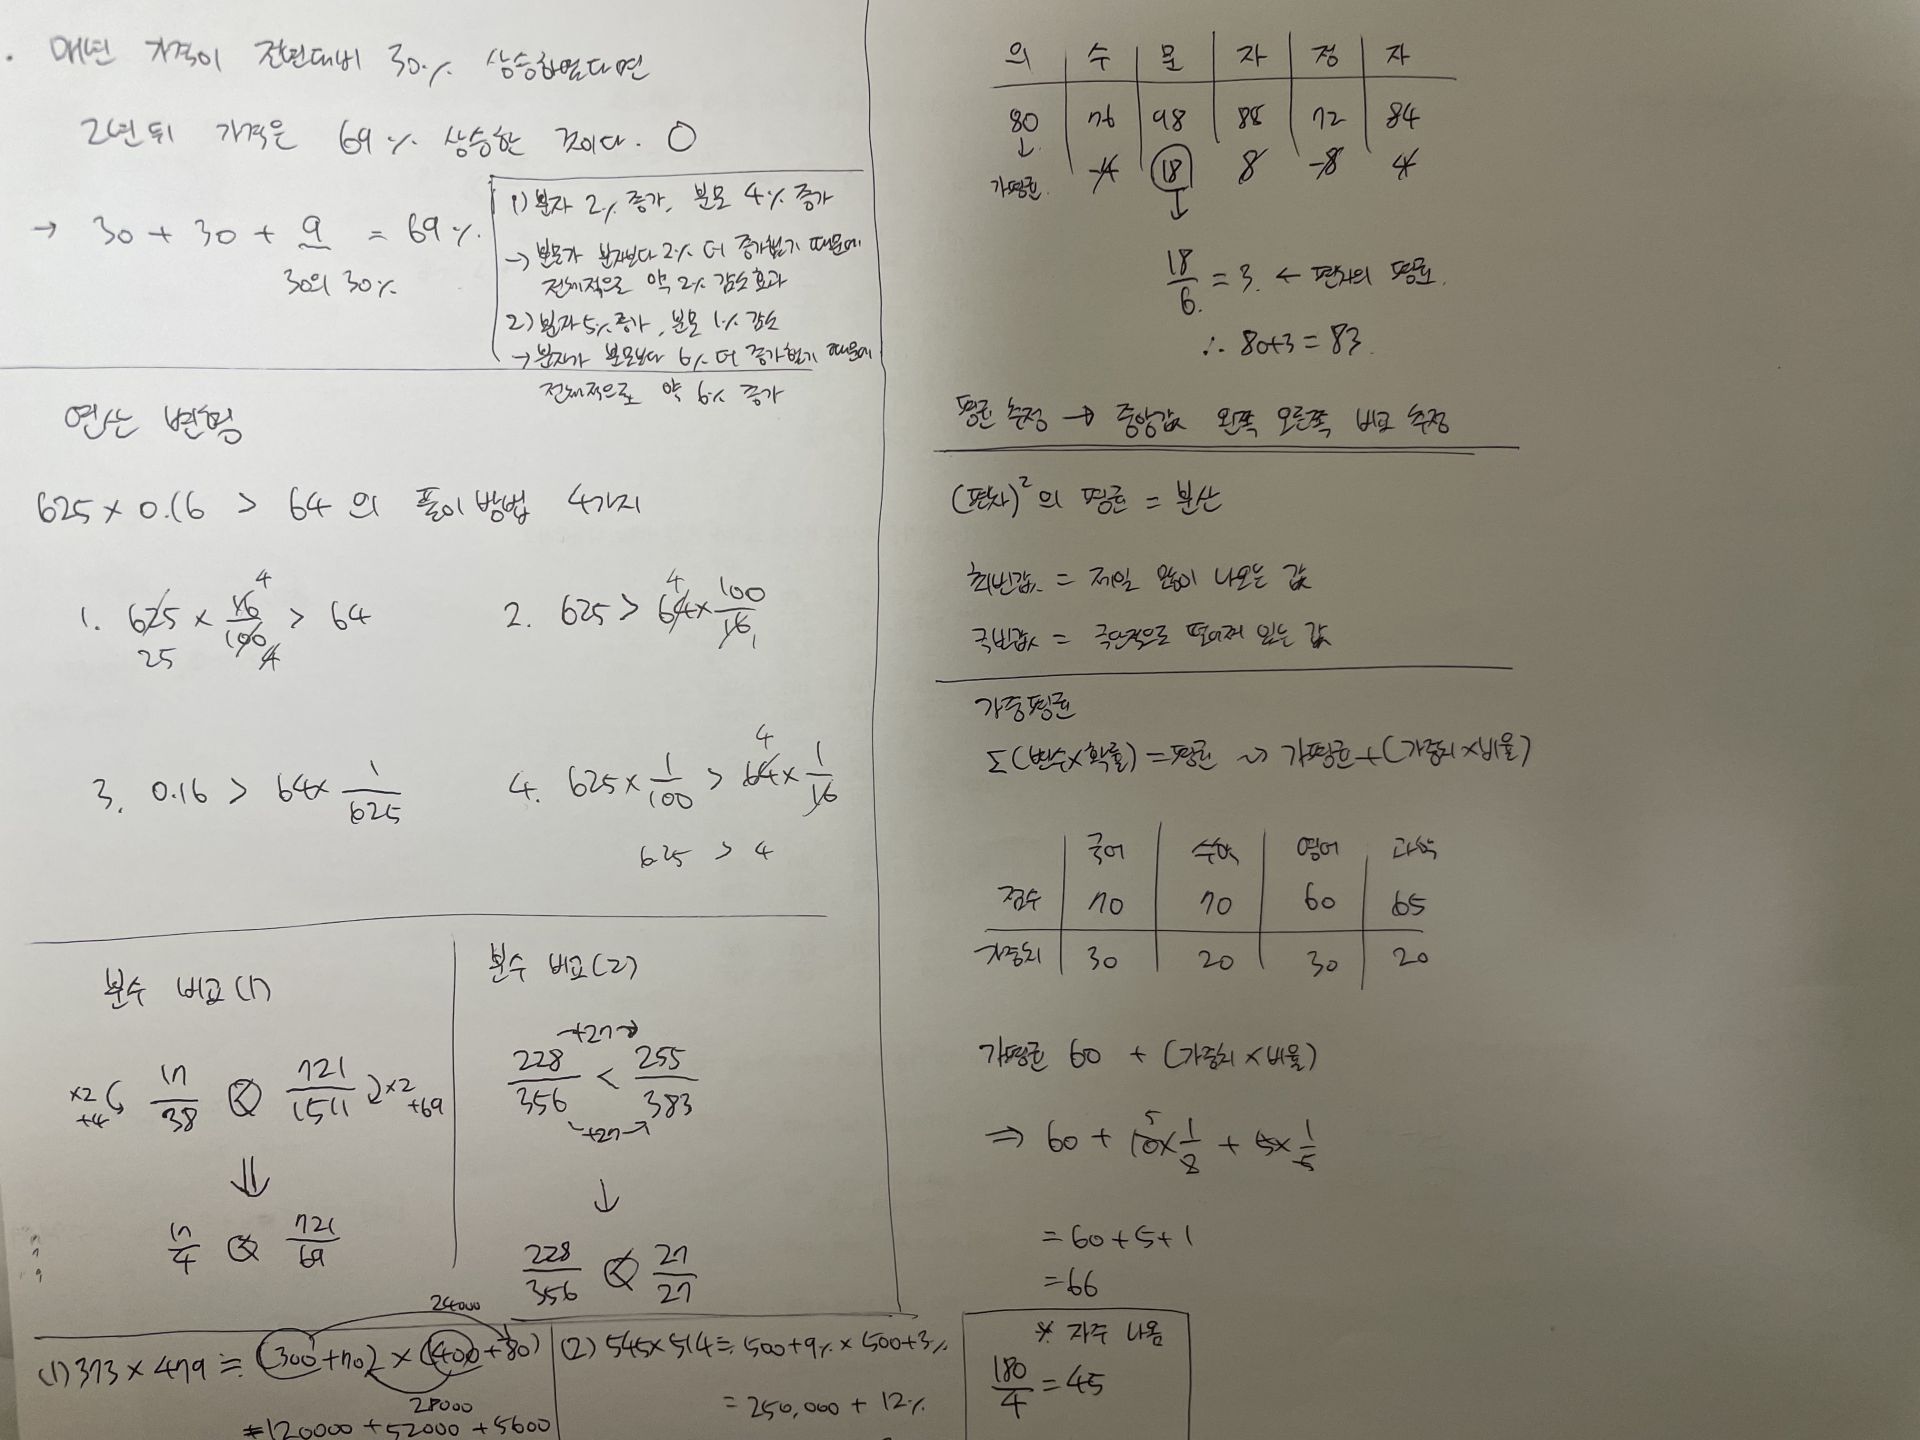 . 매년 가격이 전년대비 30% 상승하였다면
2년 뒤 가격은 69% 상승한 것이다. O
→ 30 + 30 + 9 = 69%
30의 30%
1) 분자 2% 증가, 분모 4% 증가
→ 분모가 분자보다 2% 더 증가했기 때문에
전체적으로 약 2% 감소효과
2) 분자 5% 증가, 분모 1% 감소
→ 분자가 분모보다 6% 더 증가했기 때문에
전체적으로 약 6% 증가
연산 변형
625 × 0.16 > 64 의 풀이 방법 4가지
1. 625 × 16/100 > 64
4
25
4
2. 625 > 64 × 100/16
4
1
3. 0.16 > 64 × 1/625
4. 625 × 1/100 > 64 × 1/16
4
6.25 > 4
분수 비교 (1)
×2 +4 17/38 < 721/1511 ×2 +69
⇓
17/4 < 721/69
분수 비교 (2)
+27 →
228/356 < 255/383
+27 →
↓
228/356 < 27/27
24000
(1) 373 × 479 ≒ (300+70) × (400+80)
28000
≒ 120000 + 52000 + 5600
(2) 545 × 514 ≒ 500+9% × 500+3%
= 250,000 + 12%
의 수 문 자 정 자
80 76 98 88 72 84
↓
가평균 -4 18 8 -8 4
↓
18/6 = 3. ← 편차의 평균.
∴ 80+3 = 83.
평균 추정 → 중앙값 왼쪽 오른쪽 비교 추정
(편차)² 의 평균 = 분산
최빈값 = 제일 많이 나오는 값
극빈값 = 극단적으로 떨어져 있는 값
가중평균
Σ(변수×확률) = 평균 ~> 가평균 + (가중치 × 비율)
국어 수학 영어 과학
점수 70 70 60 65
가중치 30 20 30 20
가평균 60 + (가중치 × 비율)
⇒ 60 + 10 × 1/2 + 5 × 1/5
5
= 60 + 5 + 1
= 66
* 자주 나옴
180/4 = 45